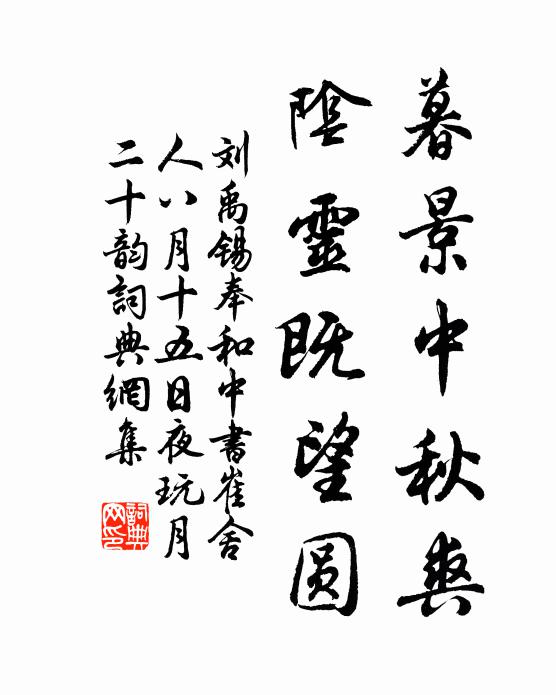 暮景中秋爽
陰靈既望圆
刘禹锡奉和中書崔舍
人八月十五日夜玩月
二十韵詞典網集
詞典
网印